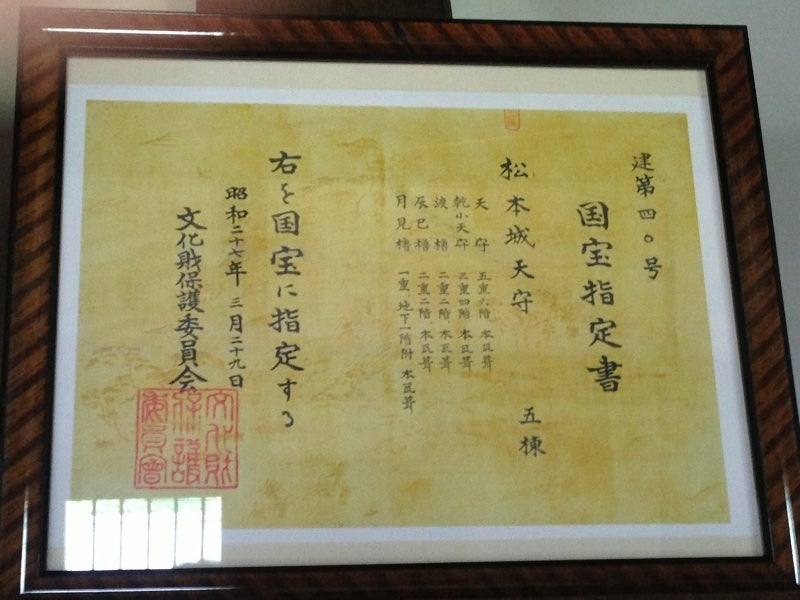 建第四〇号
国宝指定書
松本城天守 五棟
天守 五重六階 本瓦葺
乾小天守 三重四階 本瓦葺
渡櫓 二重二階 本瓦葺
辰巳櫓 二重二階 本瓦葺
月見櫓 一重、地下一階附 本瓦葺
右を国宝に指定する
昭和二十七年三月二十九日
文化財保護委員会
文化財
保護
委員會